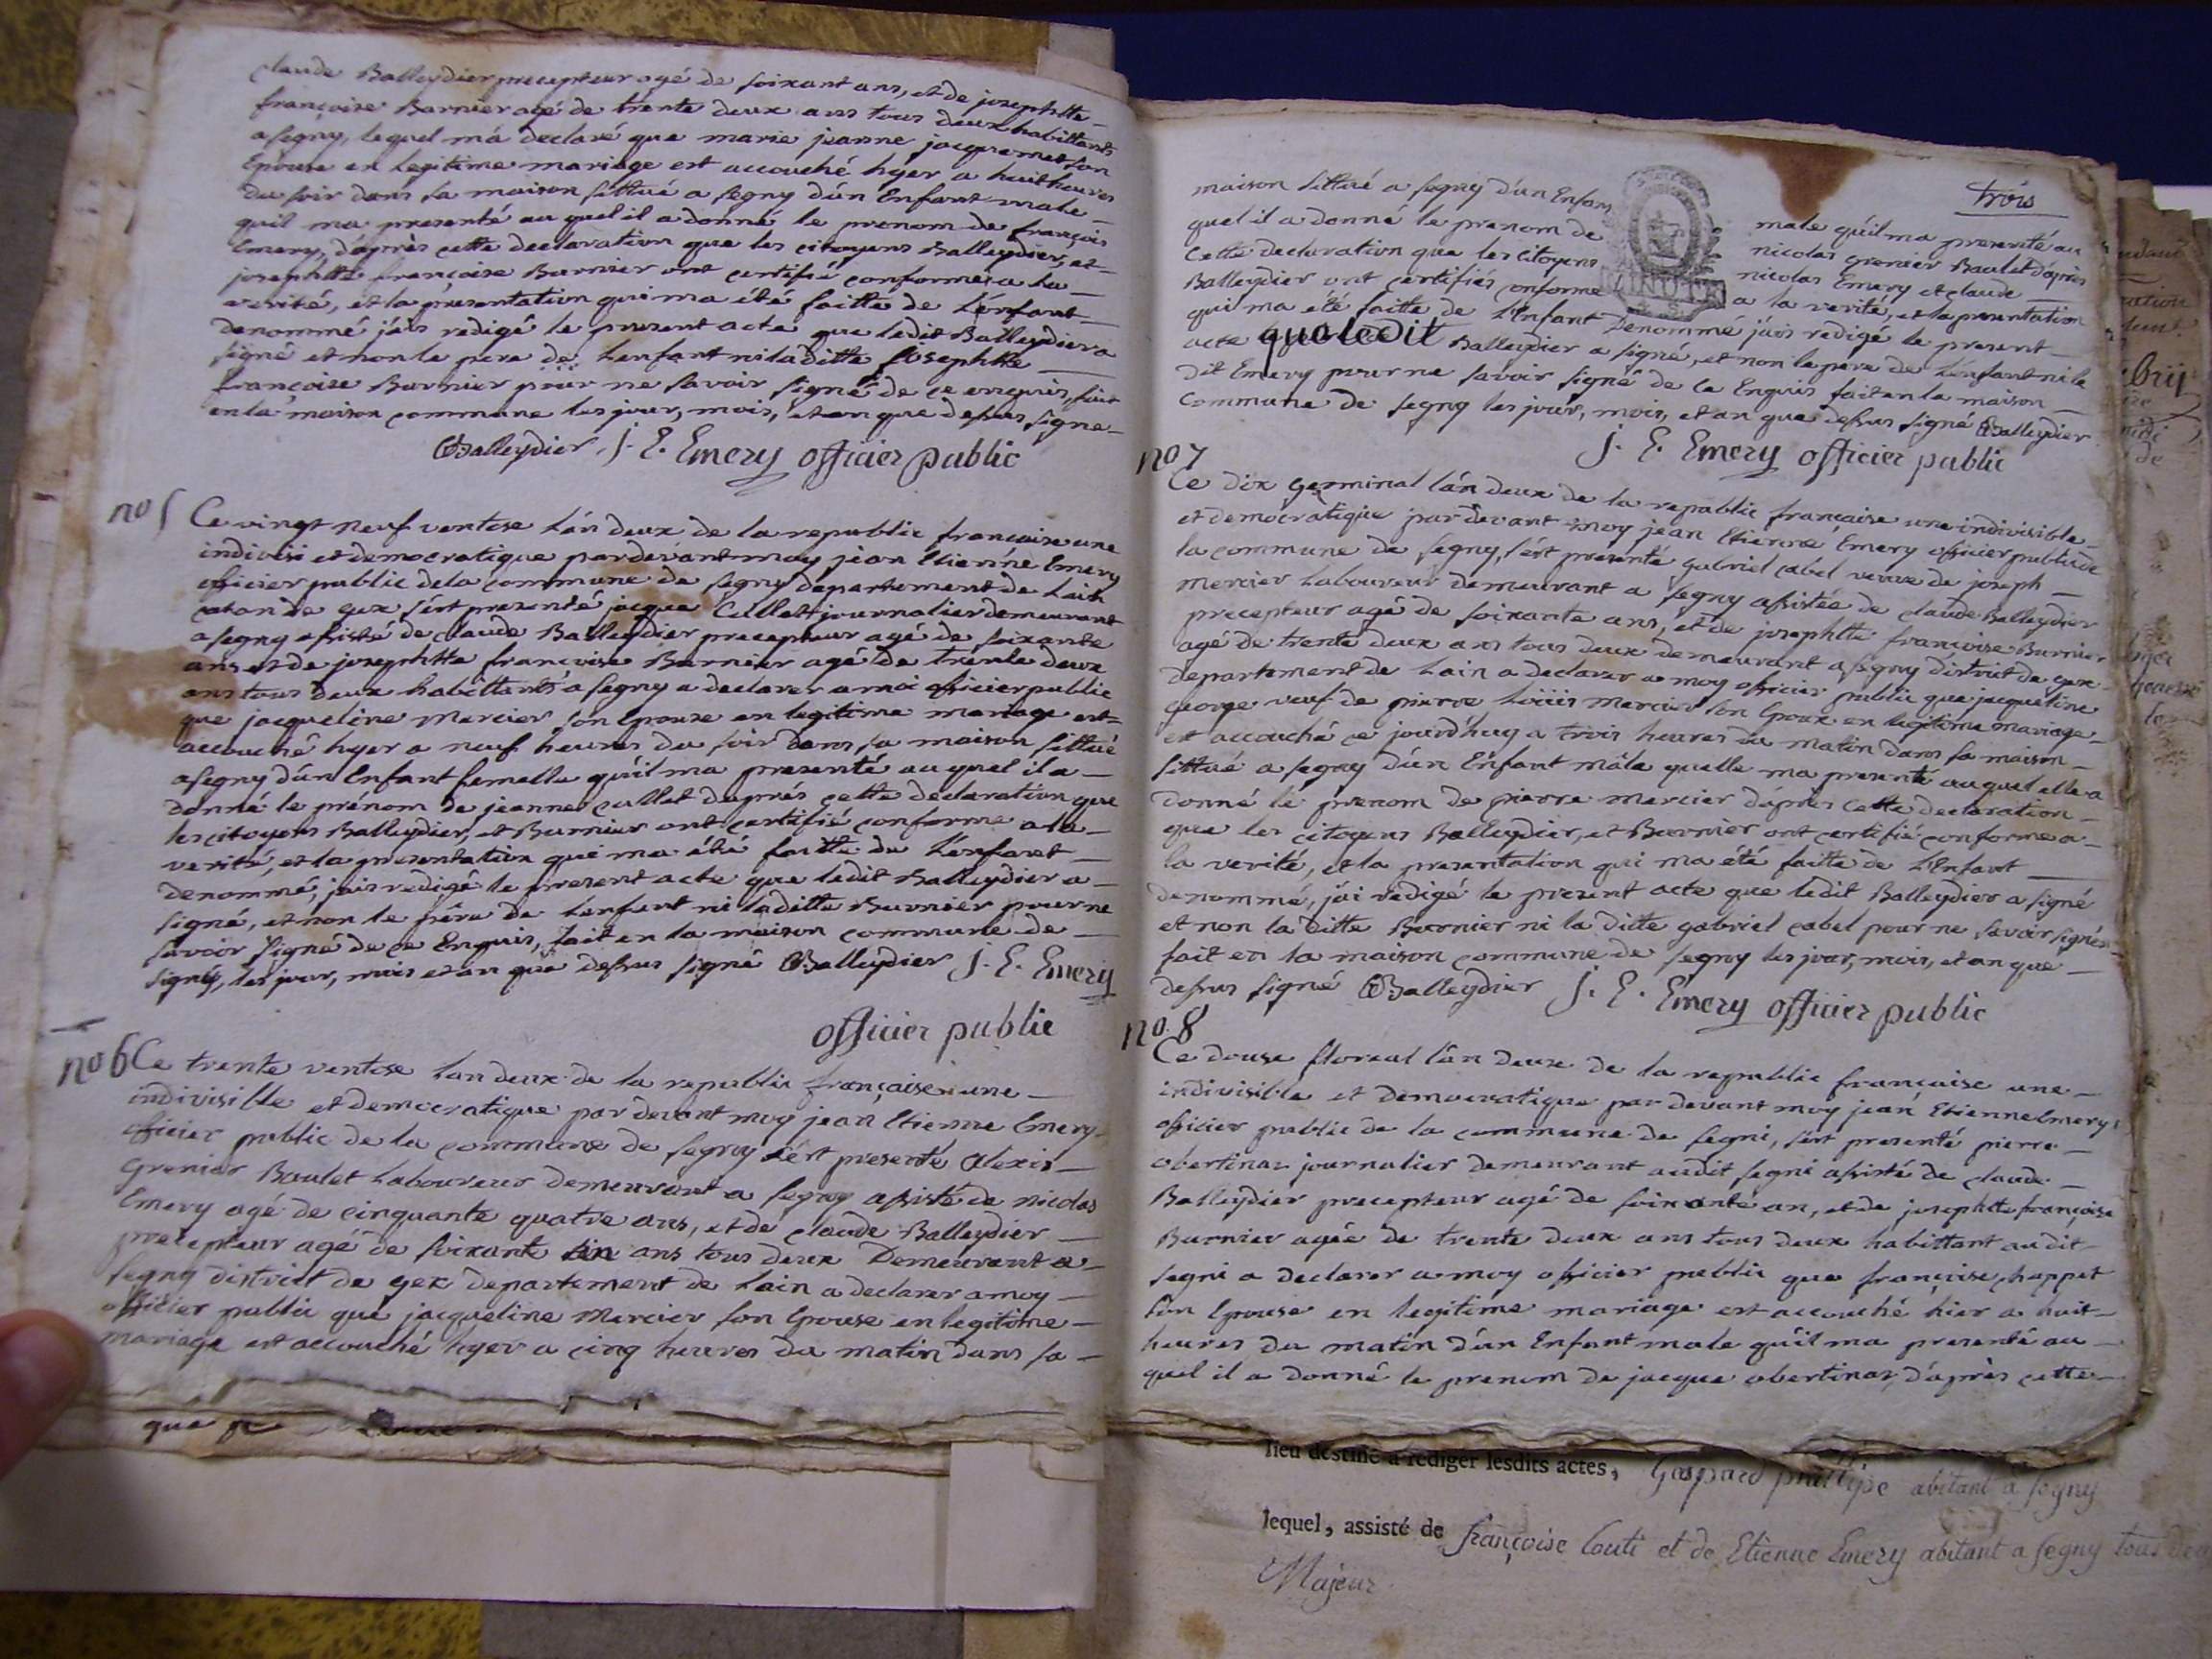 claude Balleydier precepteur agé de soixant ans, et de josephtte
françoise Burnier agé de trente deux ans tous deux habittants
a segny, lequel m'a declaré que marie jeanne jacquemet son
Epouse en legitime mariage est accouché hyer a huit heures
du soir dans sa maison sittué a segny d'un Enfant male
quil ma presenté au quel il a donné le prenom de françois
Emery, d'après cette declaration que les citoyens Balleydier, et
josephtte françoise Burnier ont certifié conforme a la
verité, et la presentation qui ma été faitte de L'enfant
denommé j'ais redigé le present acte que ledit Balleydier a
signé et non le pere de Lenfant ni laditte josephtte
françoise Burnier pour ne savoir signé de ce enquis, fait
en la maison commune les jour, mois, et an que dessus signe
Balleydier J. E. Emery officier public
no 5 Ce vingt neuf ventose L'an deux de la republic françoise une
indivisi et democratique pardevant moy jean Etienne Emery
officier public dela commune de segny departement de Lain
canton de gex s'est presenté jacque Cullet journalier demeurant
a segny assisté de claude Balleydier precepteur agé de soixante
ans et de josephtte françoise Burnier agé de trente deux
ans tous deux habittants a segny a declarer a moi officier public
que jacqueline Mercier son Epouse en legitime mariage est
accouché hyer a neuf heures du soir dans sa maison sittué
a segny d'un Enfant femelle qu'il ma presenté au quel il a
donné le prénom de jeanne cullet d'après cette declaration que
les citoyens Balleydier, et Burnier ont certifié conforme a la
verité, et la presentation qui ma été faitte de L'enfant
denommé, j'ais redigé le present acte que ledit Balleydier a
signé, et non le père de L'enfant ni laditte Burnier pour ne
savoir signé de ce Enquis, fait en la maison commune de
signy, les jour, mois et an que dessus signé Balleydier J. E. Emery
officier public
no 6 Ce trente ventose Lan deux de la republic françaisen une
indivisible et democratique par devant moy jean Etienne Emery
officier public de la commune de segny s'est presenté Alexis
Grenier Baulet Laboureur demeurant a segny assisté de nicolas
Emery agé de cinquante quatre ans, et de claude Balleydier
precepteur agé de soixante ans tous deux Demeurant a
segny district de gex departement de Lain a declarer a moy
officier public que jacqueline Mercier son Epouse en legitime
mariage est accouché hyer a cinq heures du matin dans sa
que
trois
maison sittué a segny d'un Enfant male qu'il ma presenté au
quel il a donné le prenom de nicolas grenier Baulet d'après
cette declaration que les citoyens nicolas Emery et claude
Balleydier ont certifiés conforme a la verité, et la presentation
qui ma été faitte de L'Enfant Denommé j'ais redigé le present
acte que ledit Balleydier a signé, et non le pere de L'enfant ni le
dit Emery pour ne savoir signé de ce Enquis fait en la maison
commune de segny les jour, mois, et an que dessus signé Balleydier
J. E. Emery officier public
no 7
Ce dix germinal l'an deux de la republic françaisse une indivisible
et democratique par devant moy jean Etienne Emery officier public de
la commune de segny, s'est presenté gabriel cabel veuve de joseph
mercier Laboureur demeurant a segny assistée de claude Balleydier
precepteur agé de soixante ans, et de josephtte françoise Burnier
agé de trente deux ans tous deux demeurant a segny district de gex
departement de Lain a declarer a moy officier public que jacqueline
george veuf de pierre Loüis mercier son Epoux en legitime mariage
est accouché ce jourd'huy a trois heures du matin dans sa maison
sittué a segny d'un Enfant mâle quelle ma presenté au quel elle a
donné le prenom de pierre mercier d'après cette declaration
que les citoyens Balleydier, et Burnier ont certifié conforme a
la verité, et la presentation qui ma été faitte de L'Enfant
denommé, j'ai redigé le present acte que ledit Balleydier a signé
et non la ditte Burnier ni la ditte gabriel cabel pour ne savoir signés
fait en la maison commune de segny les jour, mois, et an que
dessus signé Balleydier J. E. Emery officier public
no. 8
Ce douse floreal l'an deux de la republic françuise une
indivisible et democratique par devant moy jean Etienne Emery
officier public de la commune de segni, s'est presenté pierre
obertinaz journalier demeurant audit segni assisté de claude
Balleydier precepteur agé de soixante an, et de josephtte françoise
Burnier agée de trente deux ans tous deux habittant audit
segni a declarer a moy officier public que françoise chappet
son Epouse en legitime mariage est accouché hier a huit
heures du matin d'un Enfant male qu'il ma presenté au
quel il a donné le prenom de jacque obertinaz, d'après cette
lieu destiné à rédiger lesdits actes, Gaspard phillipe abitant a segny
lequel, assisté de françoise Couti et de Etienne Emery abitant a segny tous deu
Majeur